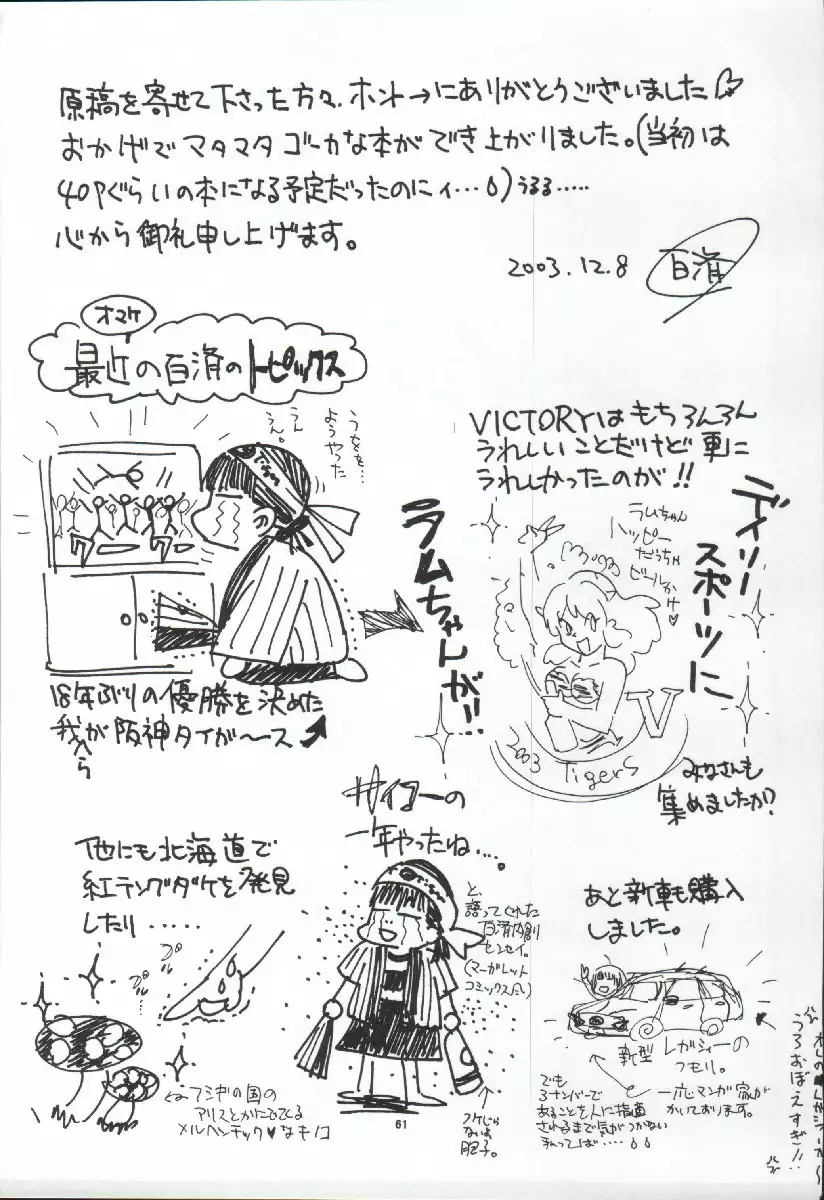 原稿を寄せて下さった方々、ホント→にありがとうございました
おかげでマタマタゴーカな本ができ上がりました。(当初は
40Pぐらいの本になる予定だったのにィ…)うるる.....
心から御礼申し上げます。
2003.12.8
百済
オマケ
最近の百済のトーピックス
うぅぅ…
ようやった
うぇぇ。
18年ぶりの優勝を決めた
我が阪神タイガ〜ース
VICTORYはもちろんろん
うれしいことだけど更に
うれしかったのが!!
デイリー
スポーツに
ラムちゃんが!!
ラムちゃん
ハッピー
だっちゃ
ビールかけ♥
V
2003 Tigers
みなさんも
集めましたか?
サイコーの
一年やったね...
と、
語ってくれた
百済内創
センセイ。
(マーガレット
コミックスだし)
他にも北海道で
紅テングダケを発見
したり……
プル
プル
←フシギの国の
アリスとかにでてくる
メルヘンチック♥なキノコ
フケじゃ
ないよ
胆子。
61
あと新車も購入
しました。
新型 レガシィーの
つもり。
一応マンガ家が
かいております。
でも
3ナンバーで
あることを人に指適
されるまで気がつかない
私ってば....
うろおぼえすぎ!!